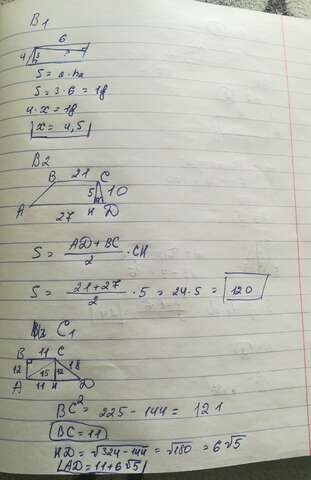 B1
6
4 3 ?
h
S = a · ha
S = 3 · 6 = 18
4 · x = 18
x = 4,5
B2
B 21 C
5 10
A 27 H D
S = AD + BC / 2 · CH
S = 21 + 27 / 2 · 5 = 24 · 5 = 120
C1
B 11 C
12 15 12 18
A 11 H D
BC² = 225 - 144 = 121
BC = 11
HD = √324 - 144 = √180 = 6√5
AD = 11 + 6√5